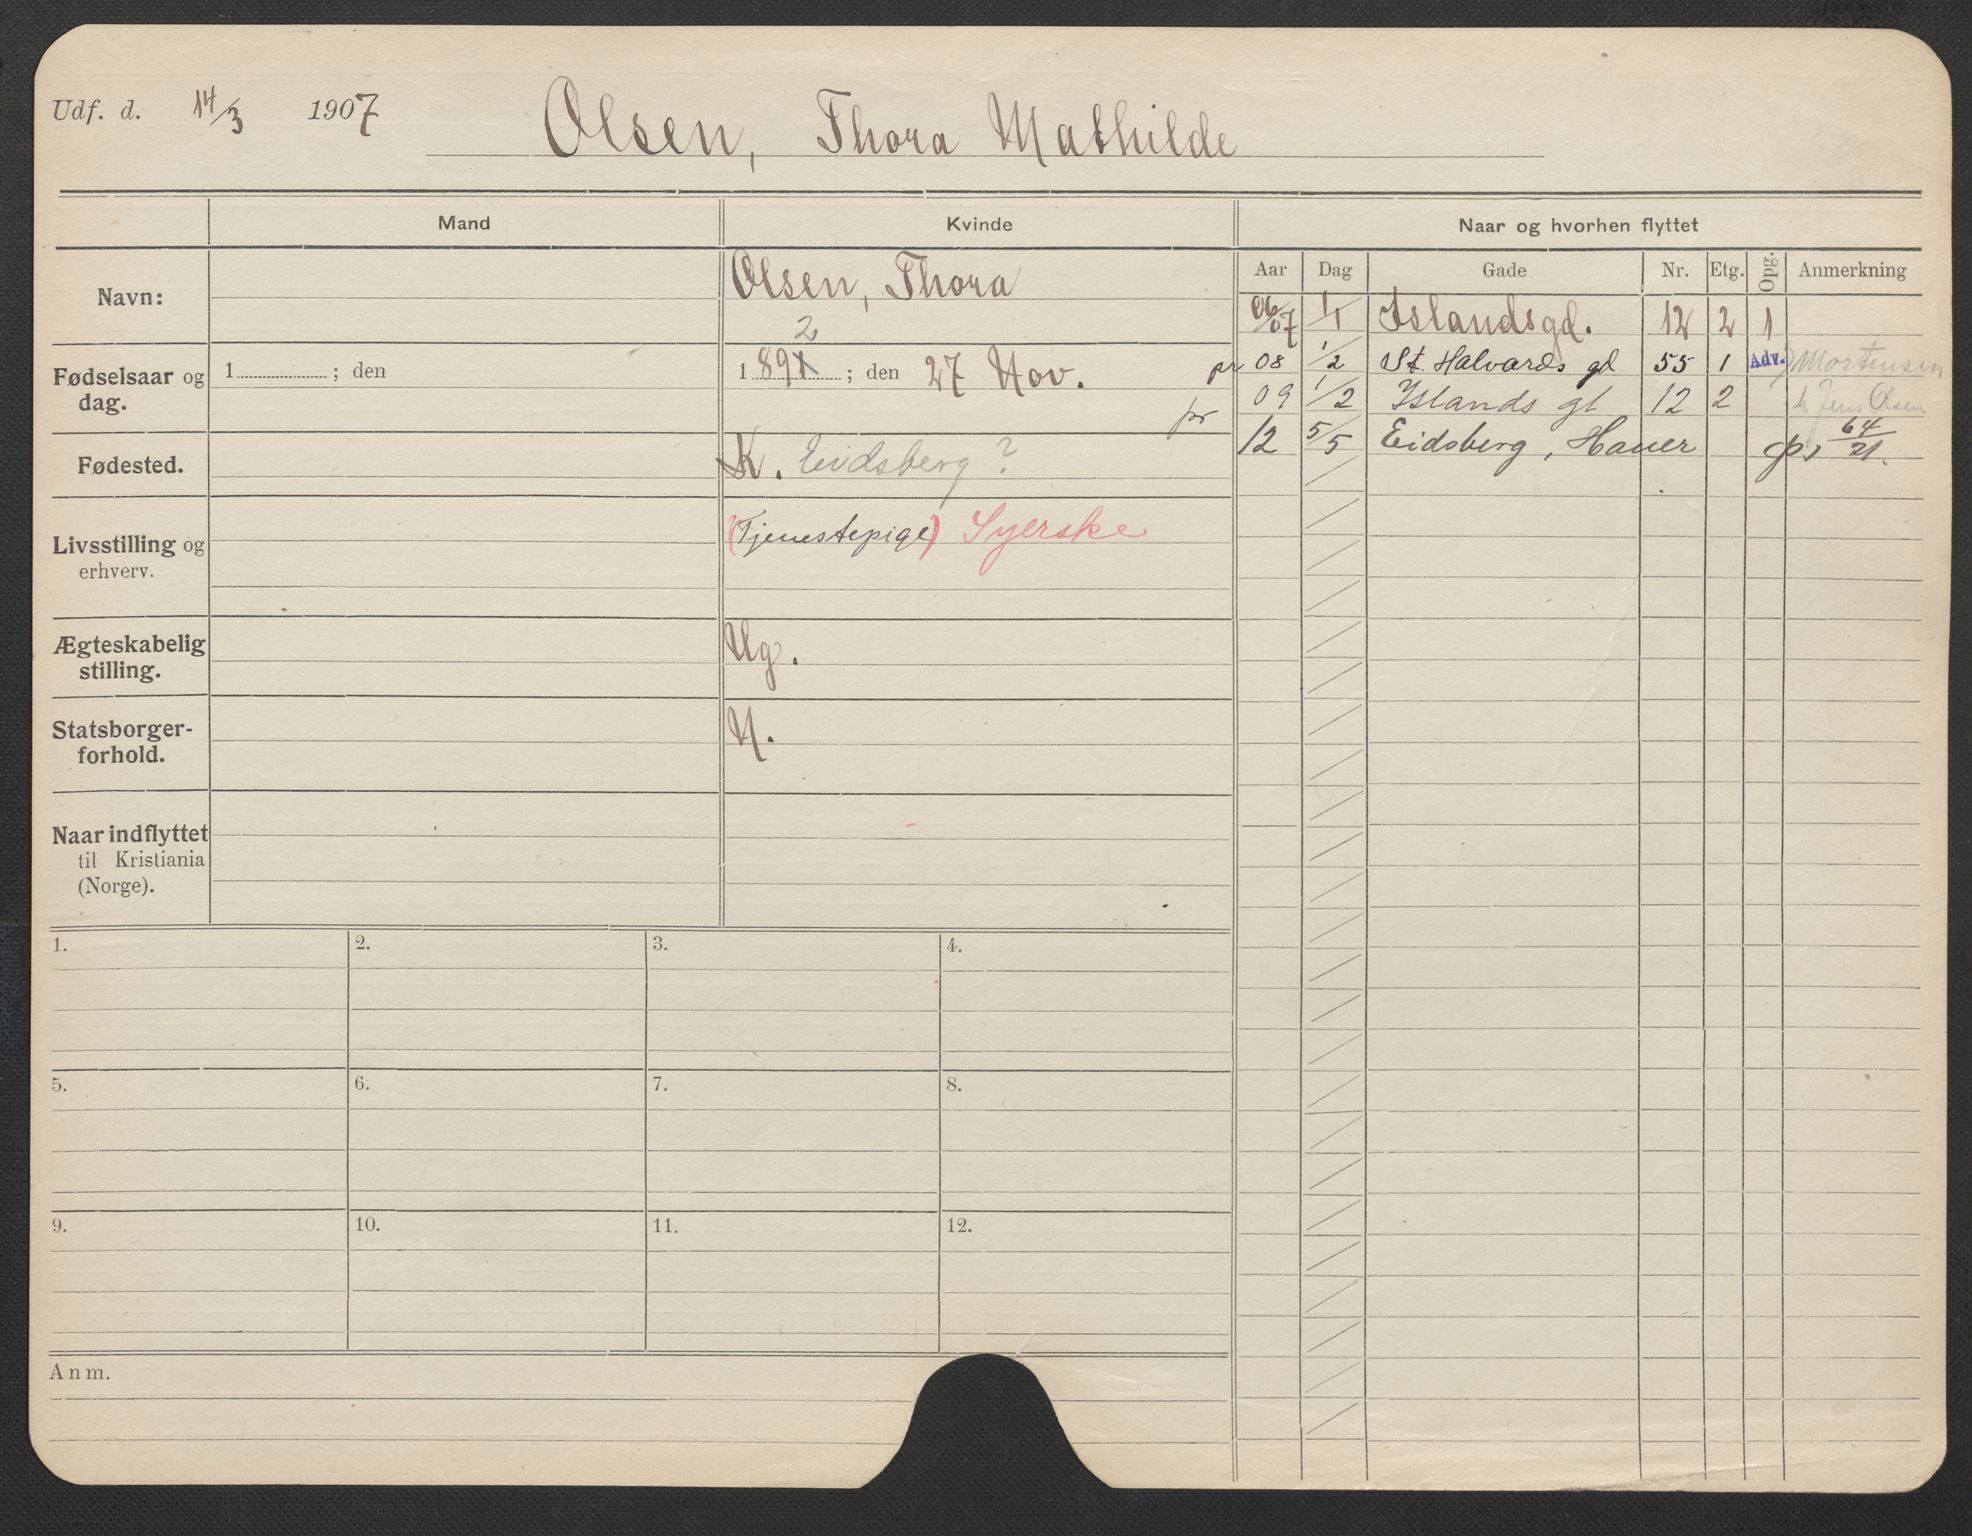 Udf. d. 14/3 1907 Olsen, Thora Mathilde
Mand Kvinde Naar og hvorhen flyttet
Navn: Olsen, Thora
Aar Dag Gade Nr. Etg. Opg. Anmerkning
06/07 1/1 Islandsgd. 12 2 1
2
Fødselsaar og dag. 1 ; den 1891 ; den 27 Nov.
pr 08 1/2 St. Halvards gd 55 1 Adv. J Mortensen
pr 09 1/2 Islands gt 12 2 h Jens Olsen
12 5/5 Eidsberg, Hauer 64/21.
Fødested. K. Eidsberg?
Livsstilling og erhverv. (Tjenestepige) Syerske
Ægteskabelig stilling. Ug.
Statsborgerforhold. N.
Naar indflyttet
til Kristiania
(Norge).
1. 2. 3. 4.
5. 6. 7. 8.
9. 10. 11. 12.
Anm.